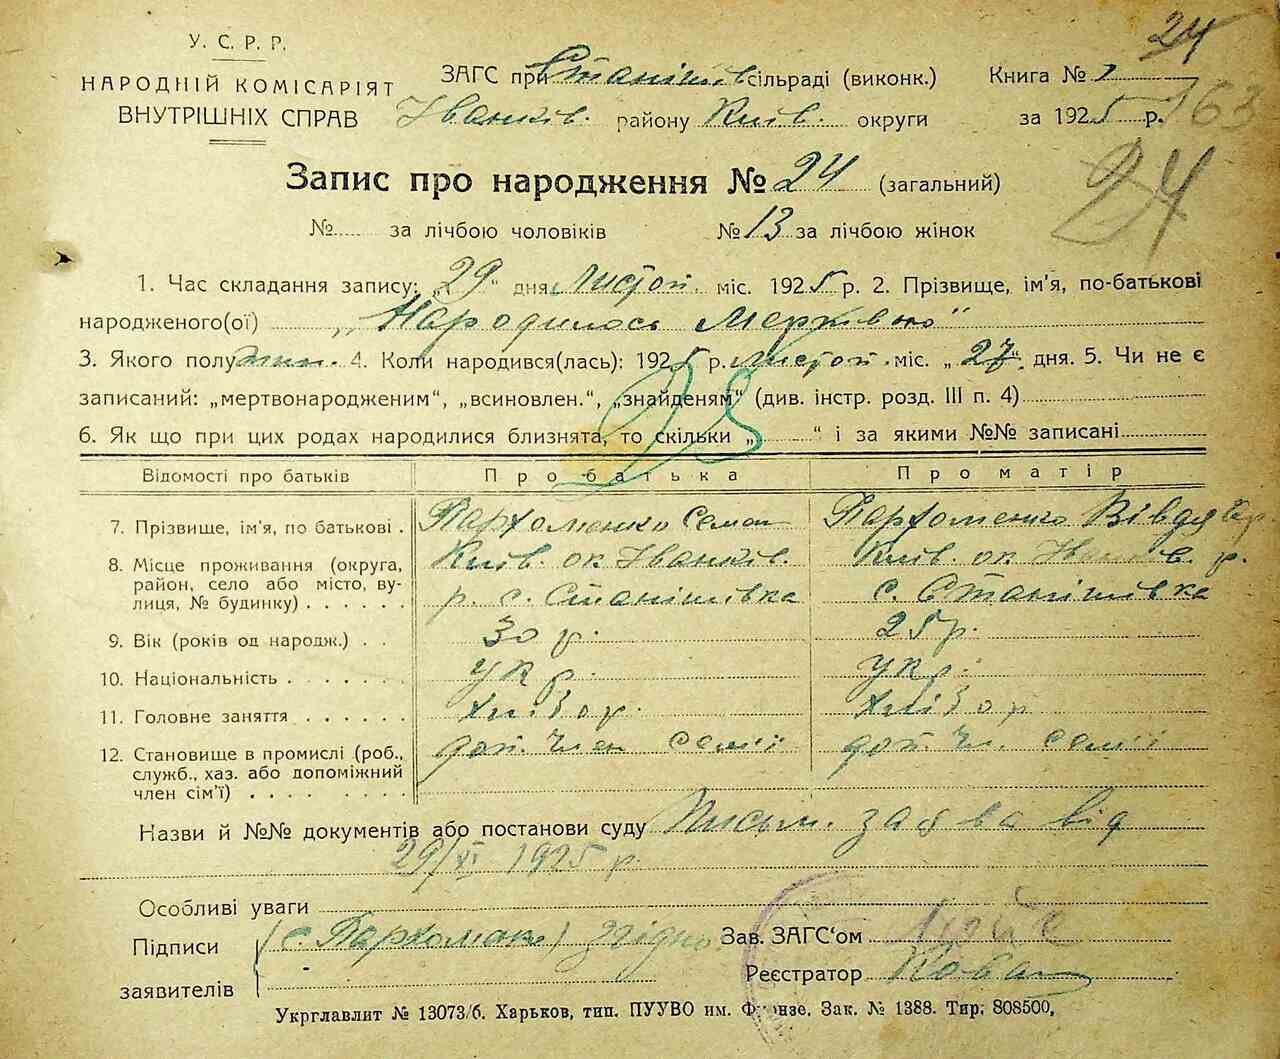 24
У. С. Р. Р.
НАРОДНІЙ КОМІСАРІЯТ
ВНУТРІШНІХ СПРАВ
ЗАГС при Станішів сільраді (виконк.)
Іванків. району Київ. округи
Книга №
за 1925 р.
163
24
Запис про народження № 24 (загальний)
№ за лічбою чоловіків № 13 за лічбою жінок
1. Час складання запису: „29“ дня Листоп. міс. 1925 р. 2. Прізвище, ім'я, по-батькові
народженого(ої) „Народилось Мертвою“
3. Якого полу жін. 4. Коли народився(лась): 1925 р. Листоп. міс. „27“ дня. 5. Чи не є
записаний: „мертвонародженим“, „всиновлен.“, „знайденям“ (див. інстр. розд. III п. 4)
6. Як що при цих родах народилися близнята, то скільки „ “ і за якими №№ записані
Відомості про батьків Про батька Про матір
7. Прізвище, ім'я, по батькові . Пархоменко Семен Пархоменко Вівдя
8. Місце проживання (округа, район, село або місто, вулиця, № будинку) Київ. ок Іванків. р. с. Станішівка Київ. ок Іванків р. с. Станішівка
9. Вік (років од народж.) . . 30 р. 25 р.
10. Національність укр. укр.
11. Головне заняття хлібор. хлібор
12. Становище в промислі (роб., служб., хаз. або допоміжний член сім'ї) доп. член семії доп. чл. семії
Назви й №№ документів або постанови суду Письм. заява від
29/XI 1925 р.
Особливі уваги
Підписи заявителів (С. Пархоменко) згідно
Зав. ЗАГС'ом
Реєстратор
Укрглавлит № 13073/б. Харьков, тип. ПУУВО им. Фрунзе. Зак. № 1388. Тир. 808500,